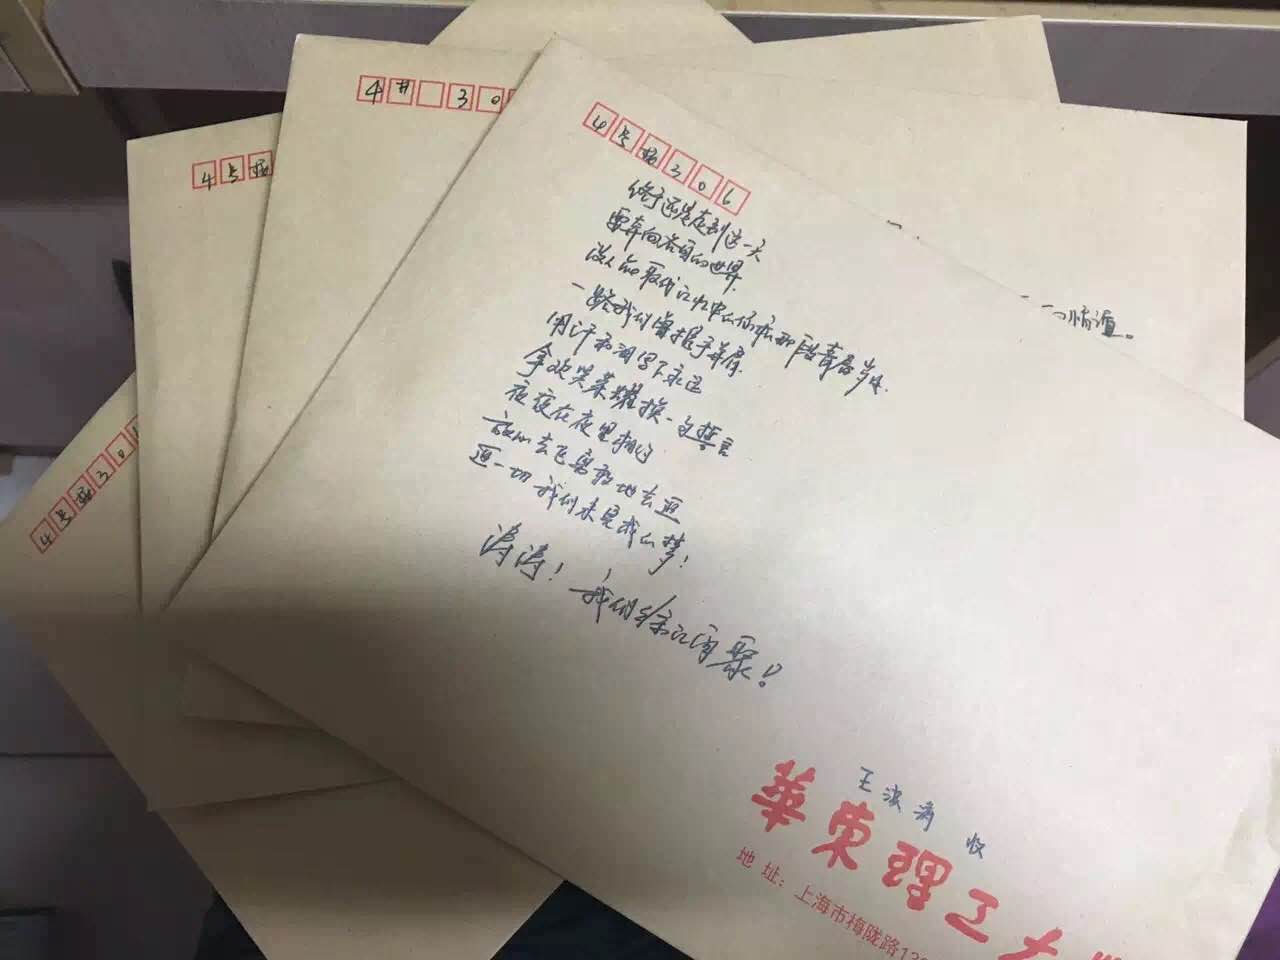 4号楼306
终于还是走到这一天
要奔向各自的世界
没人能取代记忆中的你和那段青春岁月
一路我们曾携手并肩
用汗和泪写下永远
拿欢笑荣耀换一句誓言
夜夜在夜里相约
放心去飞勇敢地去追
追一切我们未完成的梦!
涛涛! 我们徐汇再聚!
王波涛 收
華東理工大
地址:上海市梅陇路13
4#30
4号楼
4号楼30
情谊。